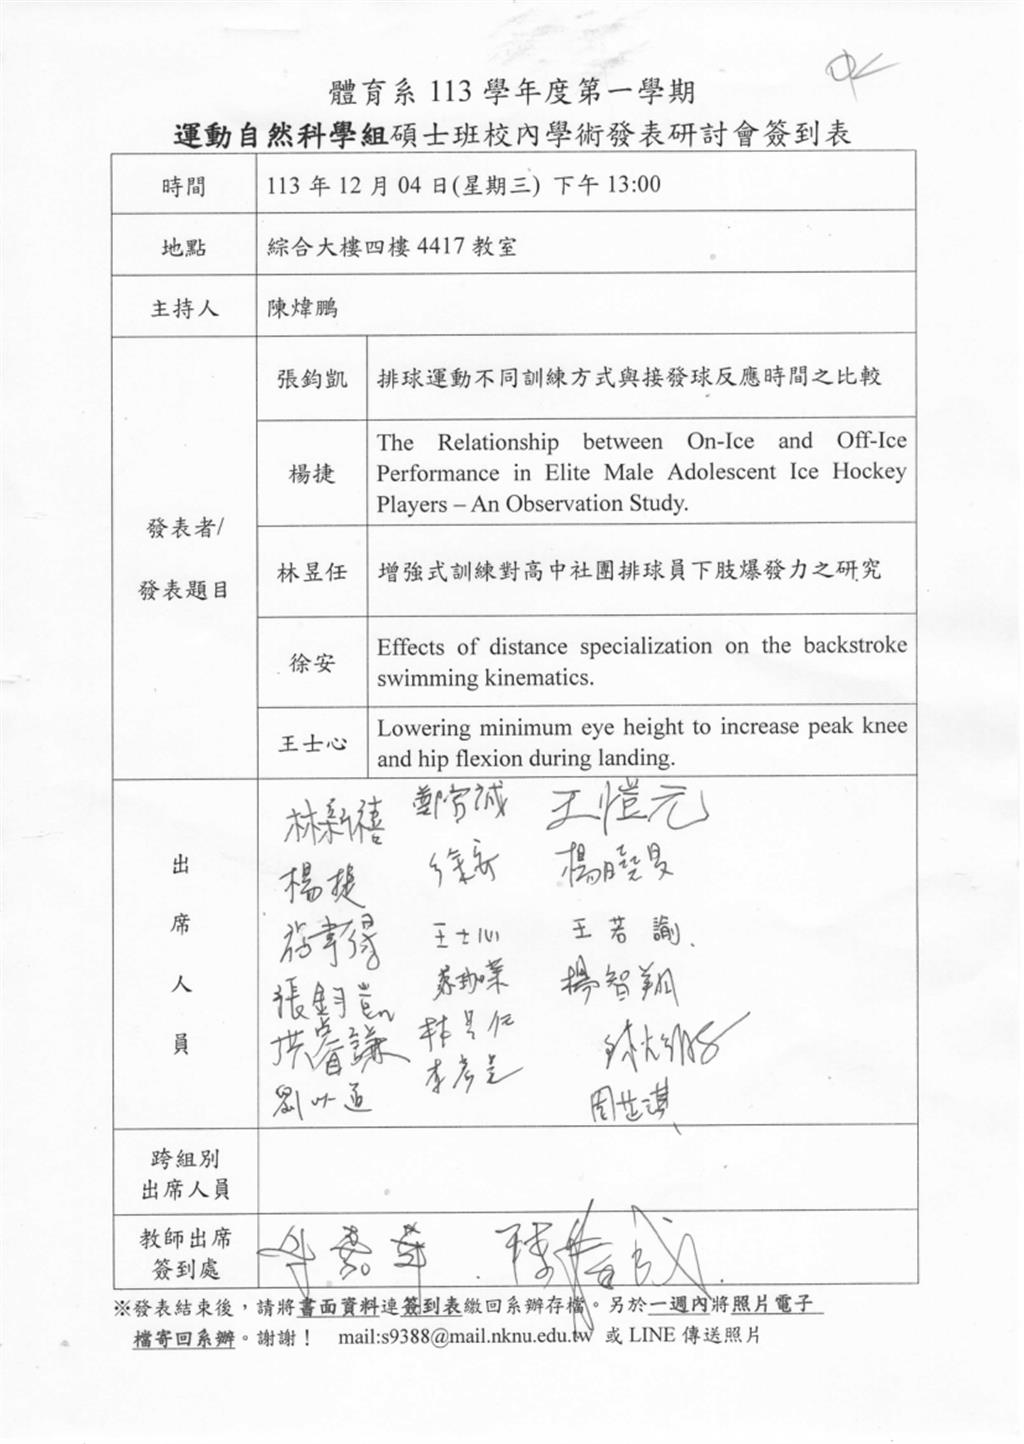 體育系 113 學年度第一學期
運動自然科學組碩士班校內學術發表研討會簽到表
時間
113 年 12 月 04 日(星期三) 下午 13:00
地點
綜合大樓四樓 4417 教室
主持人
陳煒鵬
發表者/
發表題目
張鈞凱
排球運動不同訓練方式與接發球反應時間之比較
楊捷
The Relationship between On-Ice and Off-Ice
Performance in Elite Male Adolescent Ice Hockey
Players – An Observation Study.
林昱任
增強式訓練對高中社團排球員下肢爆發力之研究
徐安
Effects of distance specialization on the backstroke
swimming kinematics.
王士心
Lowering minimum eye height to increase peak knee
and hip flexion during landing.
出
席
人
員
林新禧 王愷元
楊捷
王士心 王若諭
張鈞凱 楊智翔
洪睿謙 林昱任
跨組別
出席人員
教師出席
簽到處
※發表結束後，請將書面資料連簽到表繳回系辦存檔。另於一週內將照片電子
檔寄回系辦。謝謝！ mail:s9388@mail.nknu.edu.tw 或 LINE 傳送照片